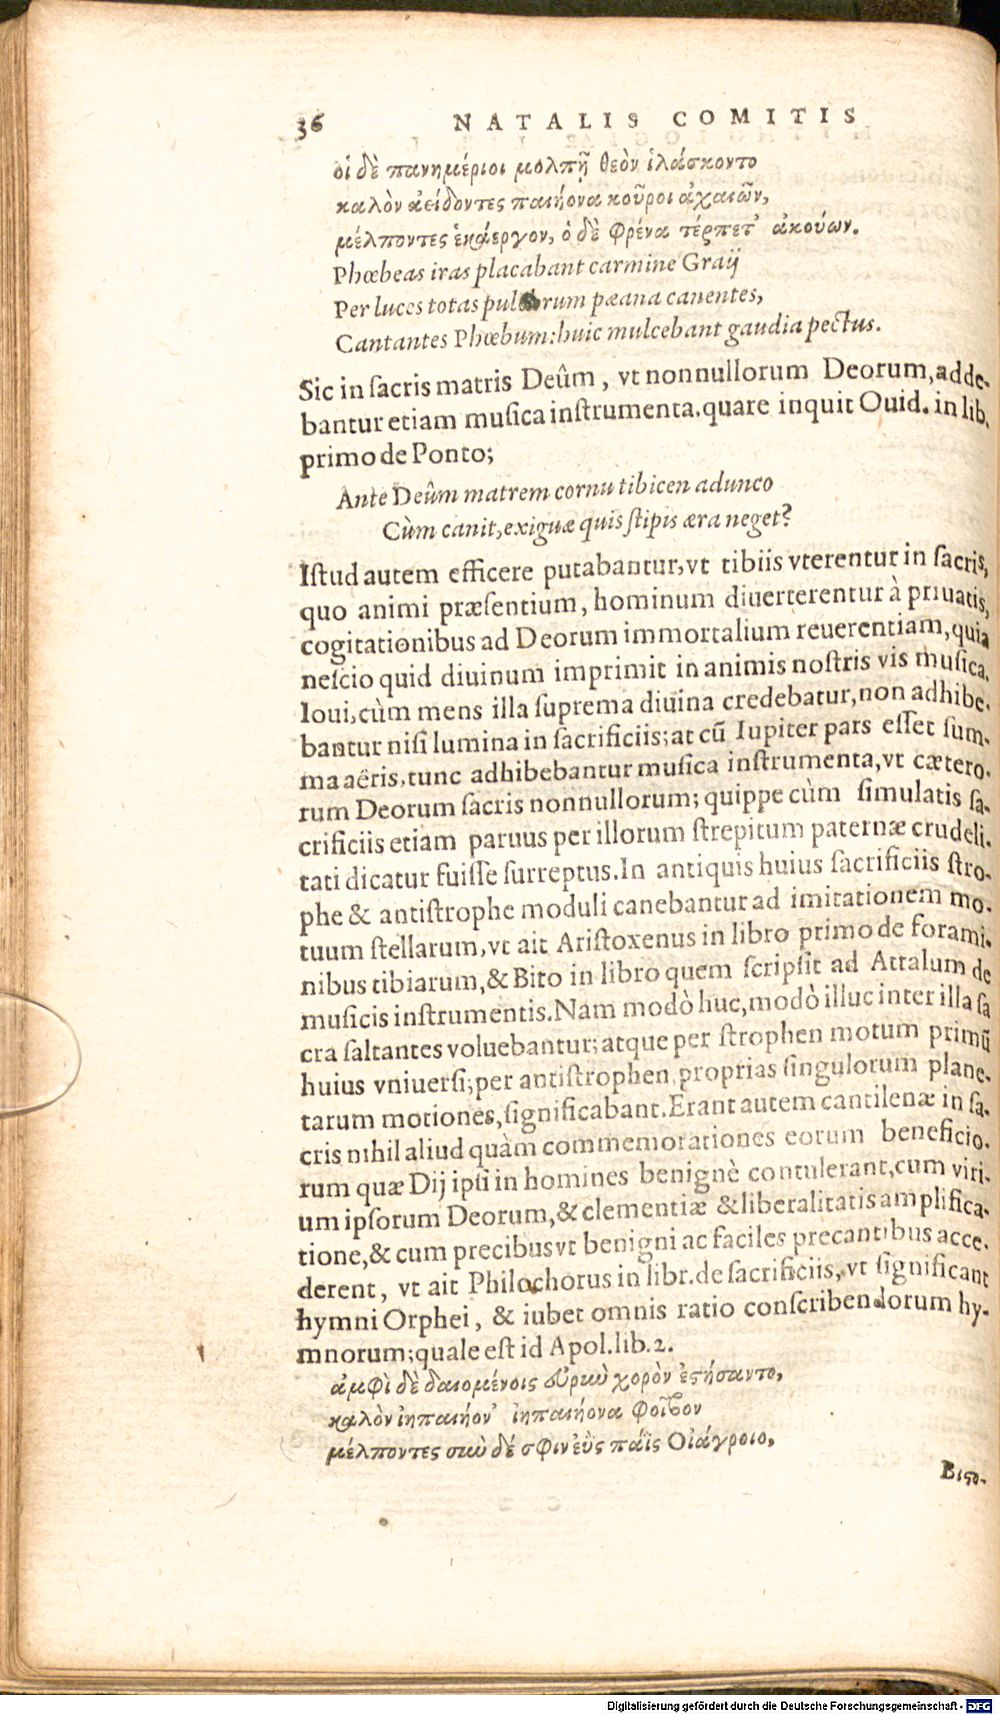 36 NATALIS COMITIS
οἱ δὲ πανημέριοι μολπῇ θεὸν ἱλάσκοντο
καλὸν ἀείδοντες παιήονα κοῦροι ἀχαιῶν,
μέλποντες ἑκάεργον, ὁ δὲ φρένα τέρπετ' ἀκούων.
Phœbeas iras placabant carmine Graij
Per luces totas pulchrum pæana canentes,
Cantantes Phœbum: huic mulcebant gaudia pectus.
Sic in ſacris matris Deûm, vt nonnullorum Deorum, adde-
bantur etiam muſica inſtrumenta. quare inquit Ouid. in lib.
primo de Ponto;
Ante Deûm matrem cornu tibicen adunco
Cùm canit, exiguæ quis ſtipis æra neget?
Iſtud autem efficere putabantur, vt tibiis vterentur in ſacris,
quo animi præſentium, hominum diuerterentur à priuatis,
cogitationibus ad Deorum immortalium reuerentiam, quia
neſcio quid diuinum imprimit in animis noſtris vis muſica.
Ioui, cùm mens illa ſuprema diuina credebatur, non adhibe-
bantur niſi lumina in ſacrificiis; at cū Iupiter pars eſſet ſum-
ma aëris, tunc adhibebantur muſica inſtrumenta, vt cætero-
rum Deorum ſacris nonnullorum; quippe cùm ſimulatis ſa-
crificiis etiam paruus per illorum ſtrepitum paternæ crudeli-
tati dicatur fuiſſe ſurreptus. In antiquis huius ſacrificiis ſtro-
phe & antiſtrophe moduli canebantur ad imitationem mo-
tuum ſtellarum, vt ait Ariſtoxenus in libro primo de forami-
nibus tibiarum, & Bito in libro quem ſcripſit ad Attalum de
muſicis inſtrumentis. Nam modò huc, modò illuc inter illa ſa
cra ſaltantes voluebantur; atque per ſtrophen motum primū
huius vniuerſi; per antiſtrophen proprias ſingulorum plane-
tarum motiones, ſignificabant. Erant autem cantilenæ in ſa-
cris nihil aliud quàm commemorationes eorum beneficio-
rum quæ Dij ipſi in homines benignè contulerant, cum viri-
um ipſorum Deorum, & clementiæ & liberalitatis amplifica-
tione, & cum precibus vt benigni ac faciles precantibus acce-
derent, vt ait Philochorus in libr. de ſacrificiis, vt ſignificant
hymni Orphei, & iubet omnis ratio conſcribendorum hy-
mnorum; quale eſt id Apol. lib. 2.
ἀμφὶ δὲ δαιομένοις εὐρὺν χορὸν ἐστήσαντο,
καλὸν ἰηπαιήον' ἰηπαιήονα φοῖβον
μέλποντες σὺν δέ σφιν ἐῢς πάϊς Οἰάγροιο,
Βιςο-
Digitalisierung gefördert durch die Deutsche Forschungsgemeinschaft - DFG